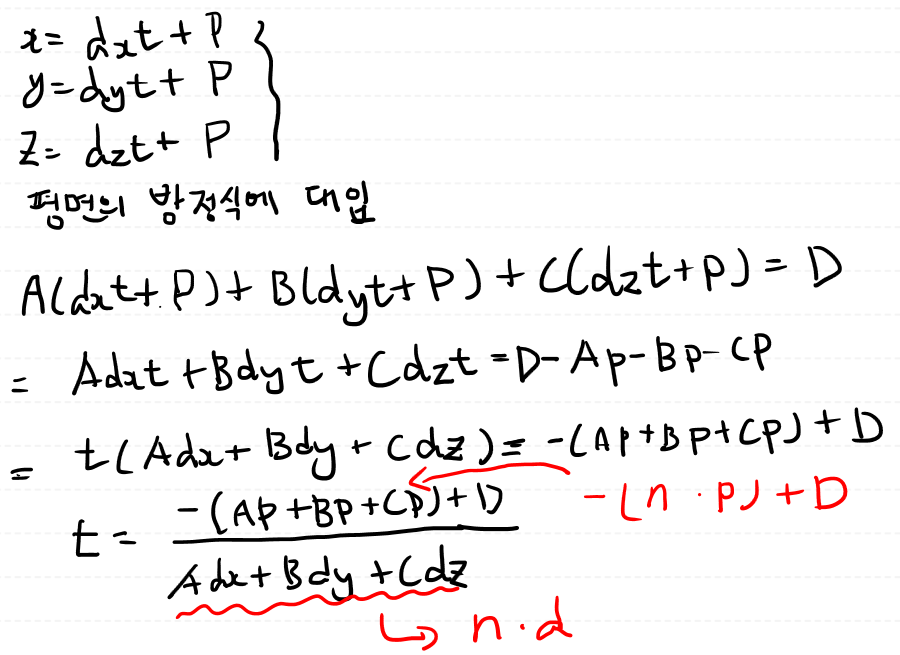 x = dxt + P
y = dyt + P
z = dzt + P
평면의 방정식에 대입
A(dxt + P) + B(dyt + P) + C(dzt + p) = D
= Adxt + Bdyt + Cdzt = D - Ap - Bp - Cp
= t(Adx + Bdy + Cdz) = -(Ap + Bp + Cp) + D
-(n · p) + D
t = -(Ap + Bp + Cp) + D
Adx + Bdy + Cdz
n · d